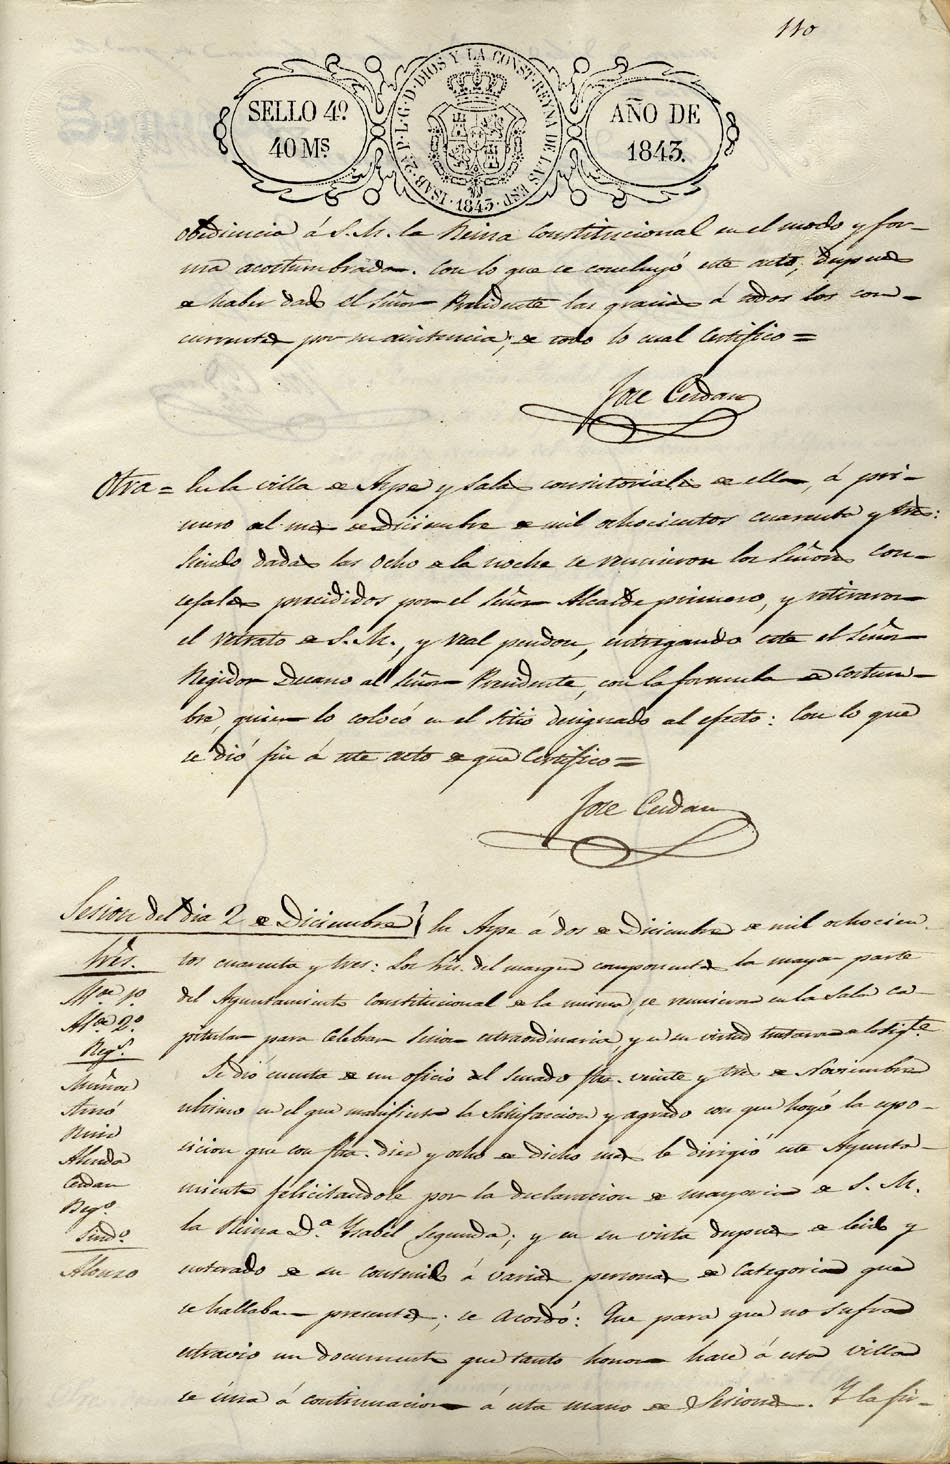 110
SELLO 4º.
40 Ms
ISAB. 2ª P. L. G. D. DIOS Y LA CONST. REYNA DE LAS ESP. 1843.
AÑO DE
1843.
obediencia á S. M. la Reina Constitucional en el modo y for-
ma acostumbrada. Con lo que se concluyó este acto, despues
de haber dado el Señor Presidente las gracias á todos los con-
currentes por su asistencia; de todo lo cual Certifico =
Jose Cerdan
Otra = En la villa de Aspe y Salas consistoriales de ella, á pri-
mero del mes de Diciembre de mil ochocientos cuarenta y tres:
Siendo dadas las ocho de la noche se reunieron los Señores con-
cejales precididos por el Señor Alcalde primero, y retiraron
el retrato de S. M., y real pendon, entregando este el Señor
Regidor Decano al Señor Presidente, con la formula de costum-
bre, quien lo colocó en el Sitio designado al efecto: Con lo que
se dió fin á este acto de que Certifico =
Jose Cerdan
Sesion del dia 2 de Diciembre
En Aspe á dos de Diciembre de mil ochocien-
tos cuarenta y tres: Los Sres. del margen componentes la mayor parte
del Ayuntamiento Constitucional de la misma, se reunieron en la Sala ca-
pitular para celebrar Sesion estraordinaria, y en su virtud trataron lo sigte.
Se dió cuenta de un oficio del Senado fha. veinte y tres de Noviembre
ultimo en el que manifiesta la Satisfaccion y agrado con que hoyó la espo-
sicion que con fha. diez y ocho de dicho mes le dirigió este Ayunta-
miento felicitandole por la declaracion de mayoria de S. M.
la Reina D.ª Ysabel Segunda; y en su vista despues de leido y
enterado de su contenido á varias personas de Categoria que
se hallaban presentes; se acordó: Que para que no sufra
estravio un documento que tanto honor hace á esta villa
se úna á continuacion á esta mano de Sesiones. Y la fir-
Sres.
Alce. 1º.
Alce. 2º.
Regs.
Muñoz
Mira
Alenda
Cerdan
Sindº.
Alonso